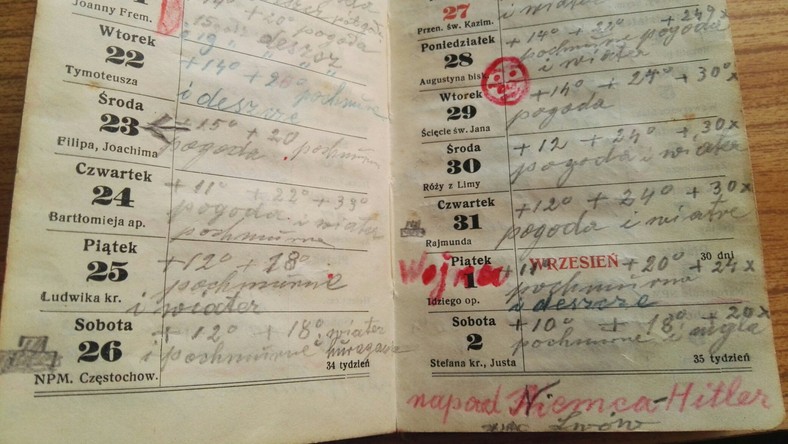 Joanny Frem.
+14° +20° pogoda
Wtorek
22
Tymoteusza
i deszcz
+14° + 20° pochmurne
i deszcze
Środa
23
Filipa, Joachima
+15° + 20
pogoda pochmurne
Czwartek
24
Bartłomieja ap.
+11° + 22° + 39°
pogoda i wiater
pochmurne
Piątek
25
Ludwika kr.
+12° + 18°
pochmurne
i wiater
Sobota
26
NPM. Częstochow.
+ 12° + 18° wiater
i pochmurne huragan
34 tydzień
27
Przen. św. Kazim.
i wiater
Poniedziałek
28
Augustyna bisk.
+14° + 22° + 24°
pochmurne pogoda
i wiater
Wtorek
29
Ścięcie św. Jana
+14° + 24° + 30°
pogoda
Środa
30
Róży z Limy
+12 + 24° + 30x
pogoda i wiater
Czwartek
31
Rajmunda
+12° + 24° + 30x
pogoda i wiatre
Wojna
Piątek
1
Idziego op.
WRZESIEŃ
30 dni
+11° + 20° + 24x
pochmurna
i deszcze
Sobota
2
Stefana kr., Justa
+10° + 18° + 20x
pochmurne i mgla
35 tydzień
napad Niemca-Hitler
Lwów